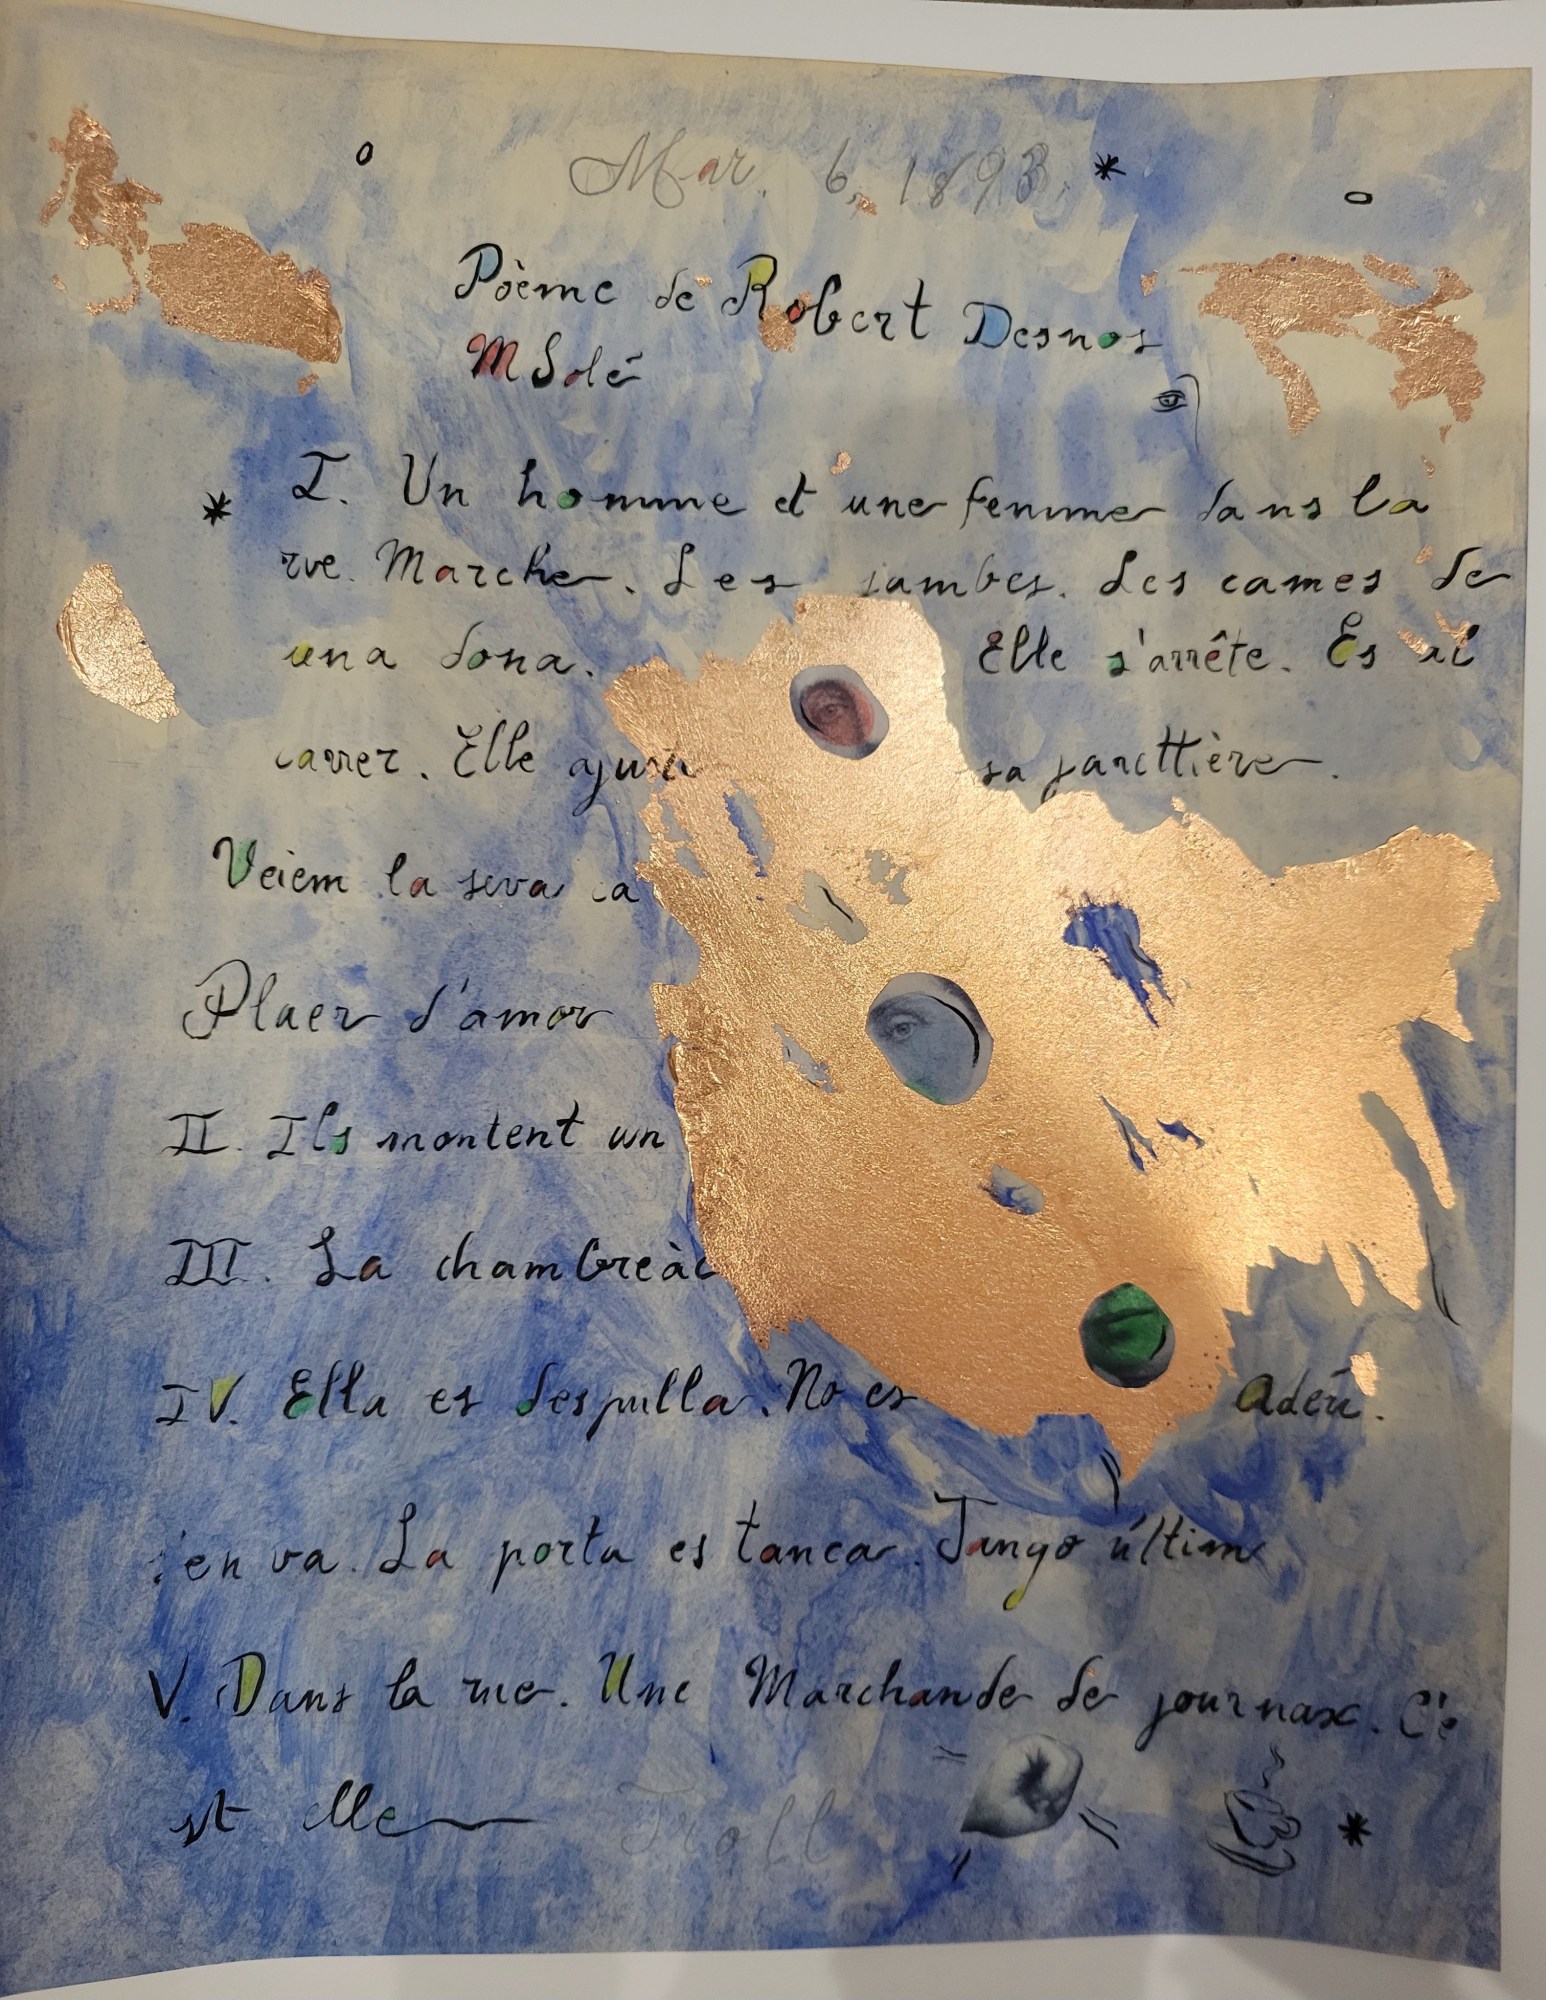 Mar. 6, 1893.
Pòeme de Robert Desnos
MSolé
I. Un homme et une femme dans la
rue. Marche. Les jambes. Les cames de
una dona. Elle s'arrête. Es al
carrer. Elle ajusta sa jarettière.
Veiem la seva ca
Plaer d'amor
II. Ils montent un
III. La chambreàc
IV. Ella es despulla. No es Adéu.
s'en va. La porta es tanca. Tango últim
V. Dans la rue. Une Marchande de journax. C'e
st elle
Troll